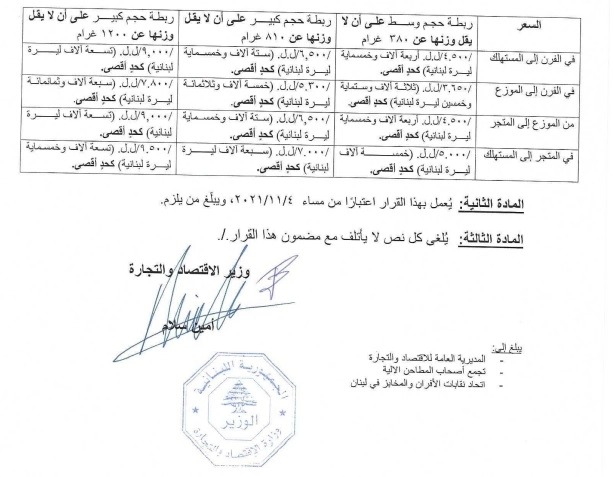 السعر
ربطة حجم وسط على أن لا يقل وزنها عن ٣٨٠ غرام
ربطة حجم كبير على أن لا يقل وزنها عن ٨١٠ غرام
ربطة حجم كبير على أن لا يقل وزنها عن ١٢٠٠ غرام
في الفرن إلى المستهلك
/٤,٥٠٠/ل.ل. أربعة آلاف وخمسماية ليرة لبنانية) كحد أقصى.
/٦,٥٠٠/ل.ل. (ستة آلاف وخمسماية ليرة لبنانية) كحد أقصى.
/٩,٠٠٠/ل.ل. (تسعة آلاف ليرة لبنانية) كحد أقصى.
في الفرن إلى الموزع
/٣,٦٥٠/ل.ل. (ثلاثة آلاف وستماية وخمسين ليرة لبنانية) كحد أقصى.
/٥,٣٠٠/ل.ل. (خمسة آلاف وثلاثمائة ليرة لبنانية) كحد أقصى.
/٧,٨٠٠/ل.ل. (سبعة آلاف وثمانمائة ليرة لبنانية) كحد أقصى.
من الموزع إلى المتجر
/٤,٥٠٠/ل.ل. أربعة آلاف وخمسماية ليرة لبنانية) كحد أقصى.
/٦,٥٠٠/ل.ل. (ستة آلاف وخمسماية ليرة لبنانية) كحد أقصى.
/٩,٠٠٠/ل.ل. (تسعة آلاف ليرة لبنانية) كحد أقصى.
في المتجر إلى المستهلك
/٥,٠٠٠/ل.ل. (خمسة آلاف ليرة لبنانية) كحد أقصى.
/٧,٠٠٠/ل.ل. (سبعة آلاف ليرة لبنانية) كحد أقصى.
/٩,٥٠٠/ل.ل. (تسعة آلاف وخمسماية ليرة لبنانية) كحد أقصى.
المادة الثانية: يُعمل بهذا القرار اعتبارًا من مساء ٢٠٢١/١١/٤، ويبلّغ من يلزم.
المادة الثالثة: يُلغى كل نص لا يأتلف مع مضمون هذا القرار./.
وزير الاقتصاد والتجارة
أمين سلام
يبلغ إلى:
- المديرية العامة للاقتصاد والتجارة
- تجمع أصحاب المطاحن الالية
- اتحاد نقابات الأفران والمخابز في لبنان
الجمهورية اللبنانية
الوزير
وزارة الإقتصاد والتجارة